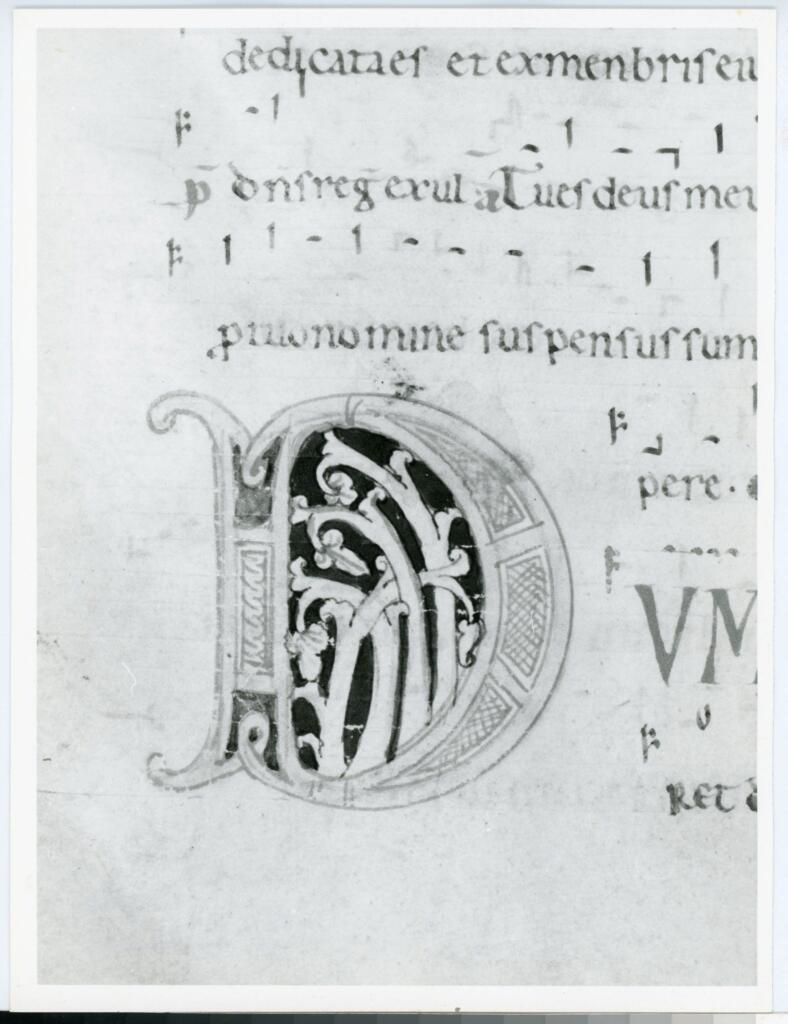 dedicataes et exmenbris eu
p̄ dn̄s reg̅ exul a Tu es deus meu
priuono mine suspensus sum
pere.
D VM
RET d